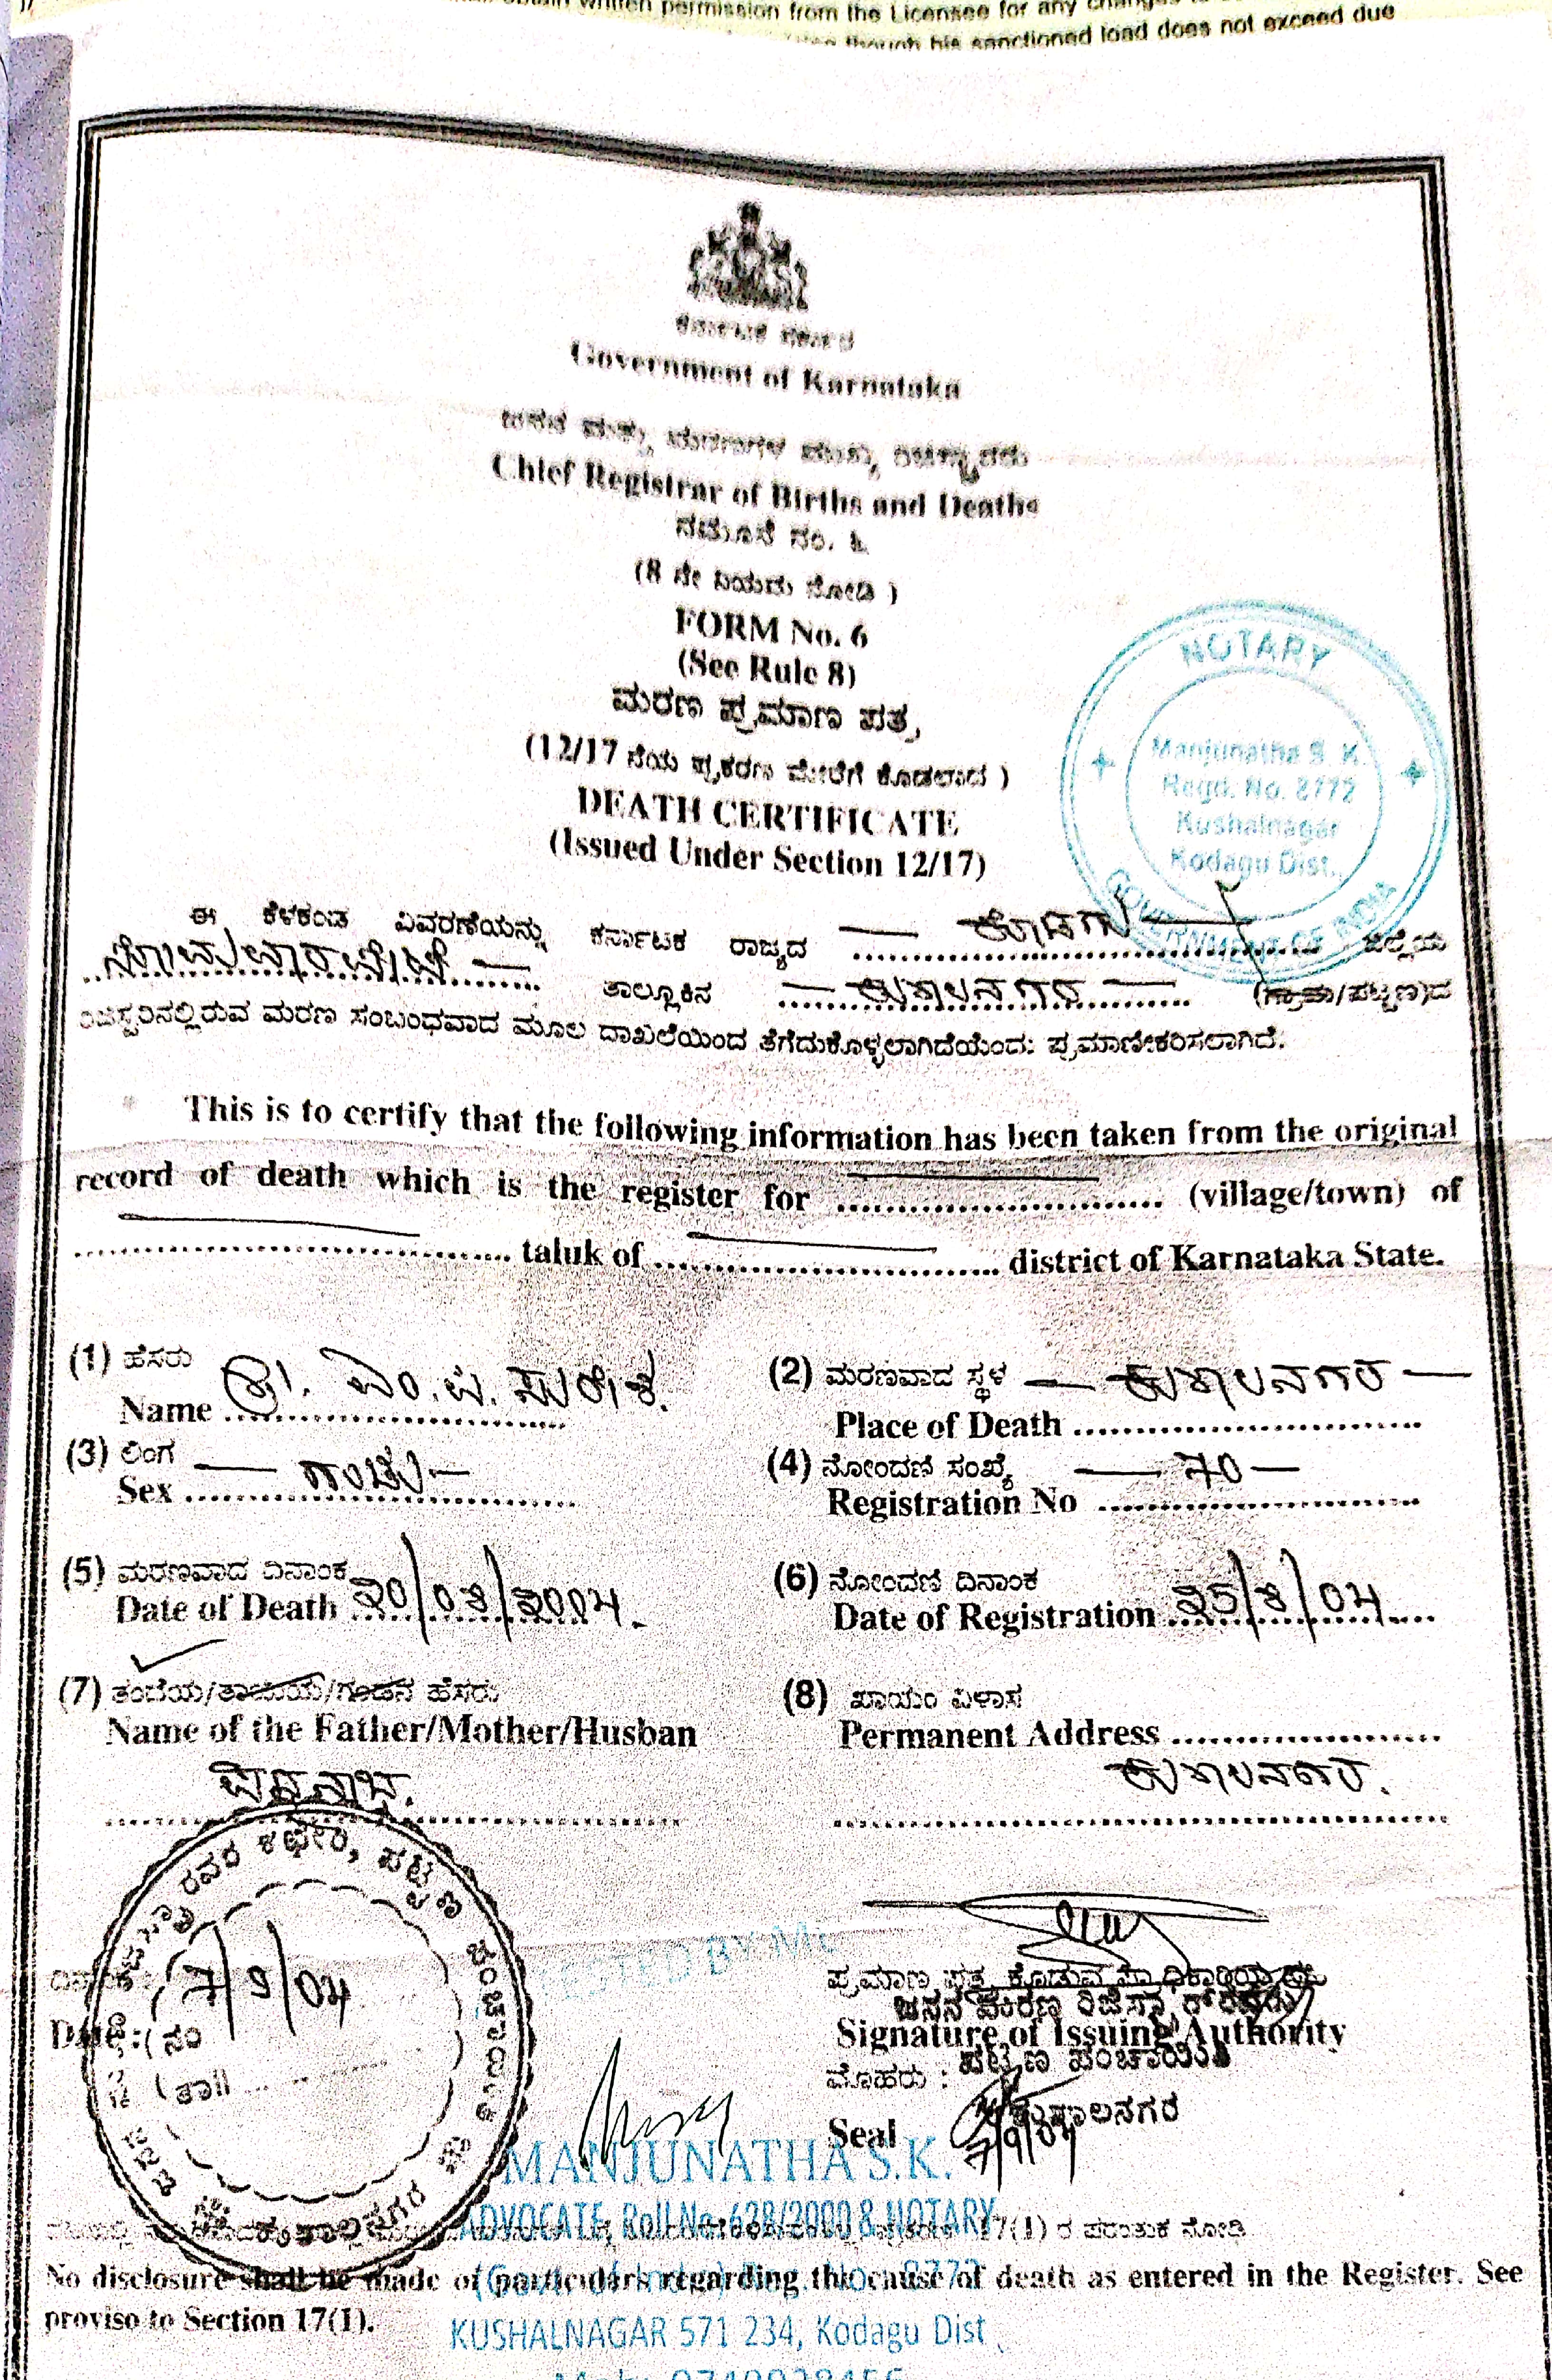 written permission from the Licensee for any changes
though his sanctioned load does not exceed due
ಕರ್ನಾಟಕ ಸರ್ಕಾರ
Government of Karnataka
ಜನನ ಮತ್ತು ಮರಣಗಳ ಮುಖ್ಯ ರಿಜಿಸ್ಟ್ರಾರರು
Chief Registrar of Births and Deaths
ನಮೂನೆ ನಂ. ೬
(8 ನೇ ನಿಯಮ ನೋಡಿ )
FORM No. 6
(See Rule 8)
ಮರಣ ಪ್ರಮಾಣ ಪತ್ರ
(12/17 ನೆಯ ಪ್ರಕರಣ ಮೇರೆಗೆ ಕೊಡಲಾದ )
DEATH CERTIFICATE
(Issued Under Section 12/17)
NOTARY
Manjunatha S. K.
Regd. No. 8772
Kushalnagar
Kodagu Dist.
GOVERNMENT OF INDIA
ಈ ಕೆಳಕಂಡ ವಿವರಣೆಯನ್ನು ಕರ್ನಾಟಕ ರಾಜ್ಯದ — ಕೊಡಗು — ಜಿಲ್ಲೆಯ
ಸೋಮವಾರಪೇಟೆ — ತಾಲ್ಲೂಕಿನ — ಕುಶಾಲನಗರ — (ಗ್ರಾಮ/ಪಟ್ಟಣ)ದ
ರಿಜಿಸ್ಟರಿನಲ್ಲಿರುವ ಮರಣ ಸಂಬಂಧವಾದ ಮೂಲ ದಾಖಲೆಯಿಂದ ತೆಗೆದುಕೊಳ್ಳಲಾಗಿದೆಯೆಂದು ಪ್ರಮಾಣೀಕರಿಸಲಾಗಿದೆ.
This is to certify that the following information has been taken from the original
record of death which is the register for .......................... (village/town) of
................................... taluk of ............................ district of Karnataka State.
(1) ಹೆಸರು ಶ್ರೀ. ಎಂ.ಪಿ. ಸುರೇಶ.
Name ............................
(2) ಮರಣವಾದ ಸ್ಥಳ — ಕುಶಾಲನಗರ —
Place of Death ............................
(3) ಲಿಂಗ — ಗಂಡು —
Sex ................................
(4) ನೋಂದಣಿ ಸಂಖ್ಯೆ — 70 —
Registration No ..........................
(5) ಮರಣವಾದ ದಿನಾಂಕ
Date of Death 20/08/2004.
(6) ನೋಂದಣಿ ದಿನಾಂಕ
Date of Registration 25/8/04
(7) ತಂದೆಯ/ತಾಯಿಯ/ಗಂಡನ ಹೆಸರು
Name of the Father/Mother/Husban
ಪದ್ಮನಾಭ.
(8) ಖಾಯಂ ವಿಳಾಸ
Permanent Address ......................
ಕುಶಾಲನಗರ.
ರವರ ಕಛೇರಿ, ಪಟ್ಟಣ ಪಂಚಾಯಿತಿ
ಕುಶಾಲನಗರ
ದಿನಾಂಕ : 7/9/04
Date :
ನಂ
ತಾ||
ATTESTED BY ME
ಪ್ರಮಾಣ ಪತ್ರ ಕೊಡುವ ಪ್ರಾಧಿಕಾರಿಯ ಸಹಿ
ಜನನ ಮರಣ
Signature of Issuing Authority
ಪಟ್ಟಣ ಪಂಚಾಯಿತಿ
ಮೊಹರು :
ಕುಶಾಲನಗರ
Seal 7/9/04
MANJUNATHA S.K.
ADVOCATE, Roll No. 628/2000 & NOTARY
17(1) ರ ಪರಂತುಕ ನೋಡಿ
(Govt. of India) 8772
No disclosure shall be made of particulars regarding the cause of death as entered in the Register. See
proviso to Section 17(1).
KUSHALNAGAR 571 234, Kodagu Dist